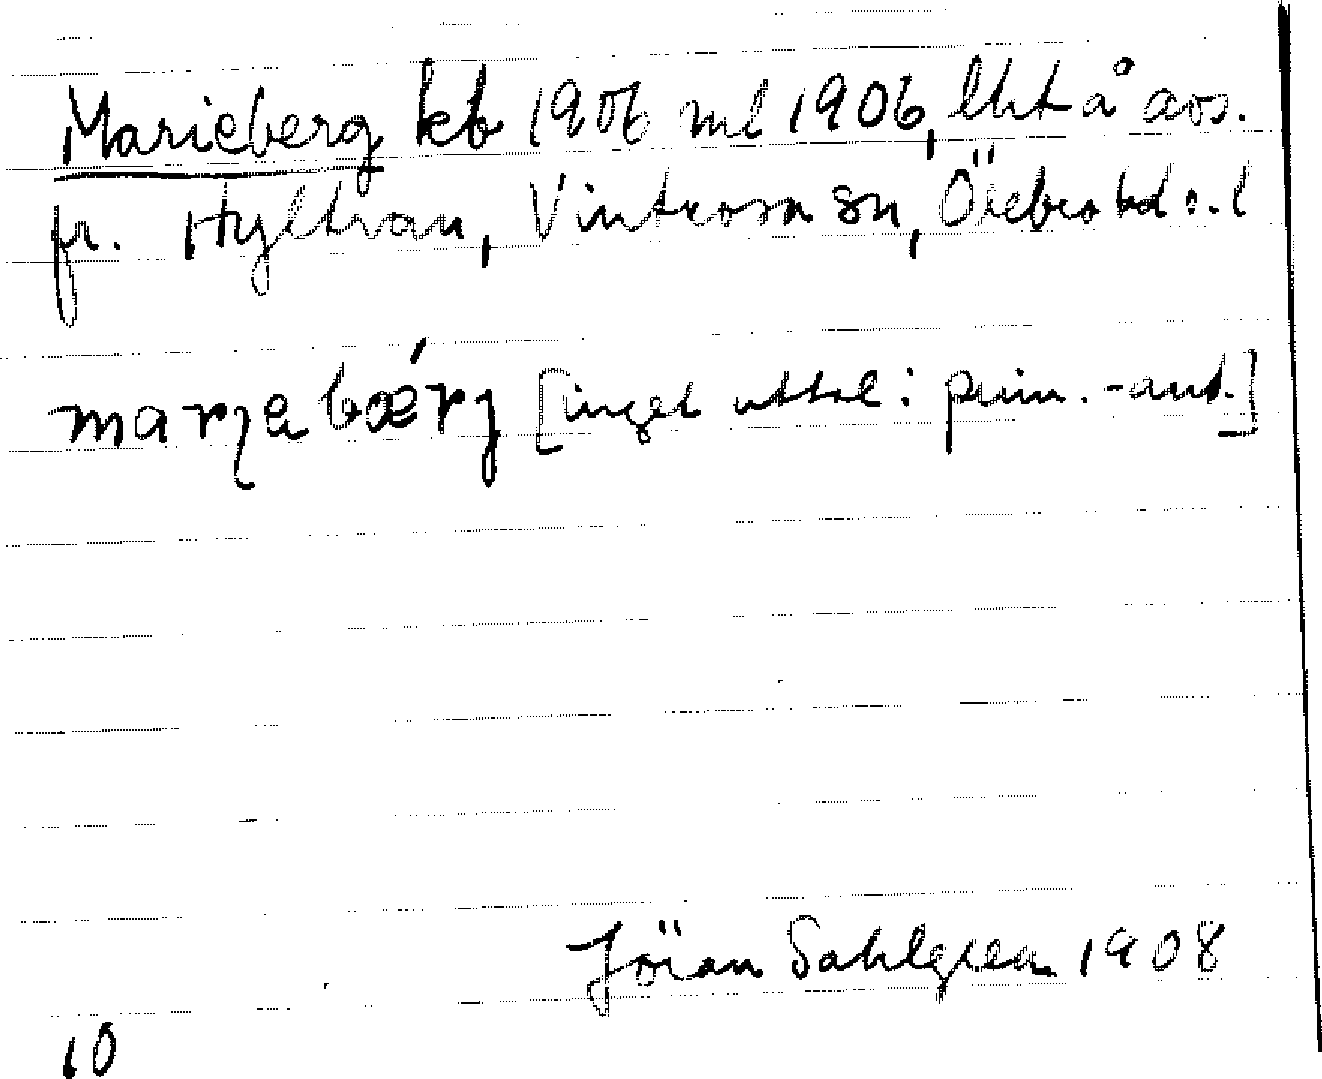 Marieberg kb 1906 ml 1906, lht å avs.
fr. Hyltran, Vintrosa sn, Örebro hd o. l
marjebǽrj [inget uttal i prim.-ant.]
Jöran Sahlgren 1908
10